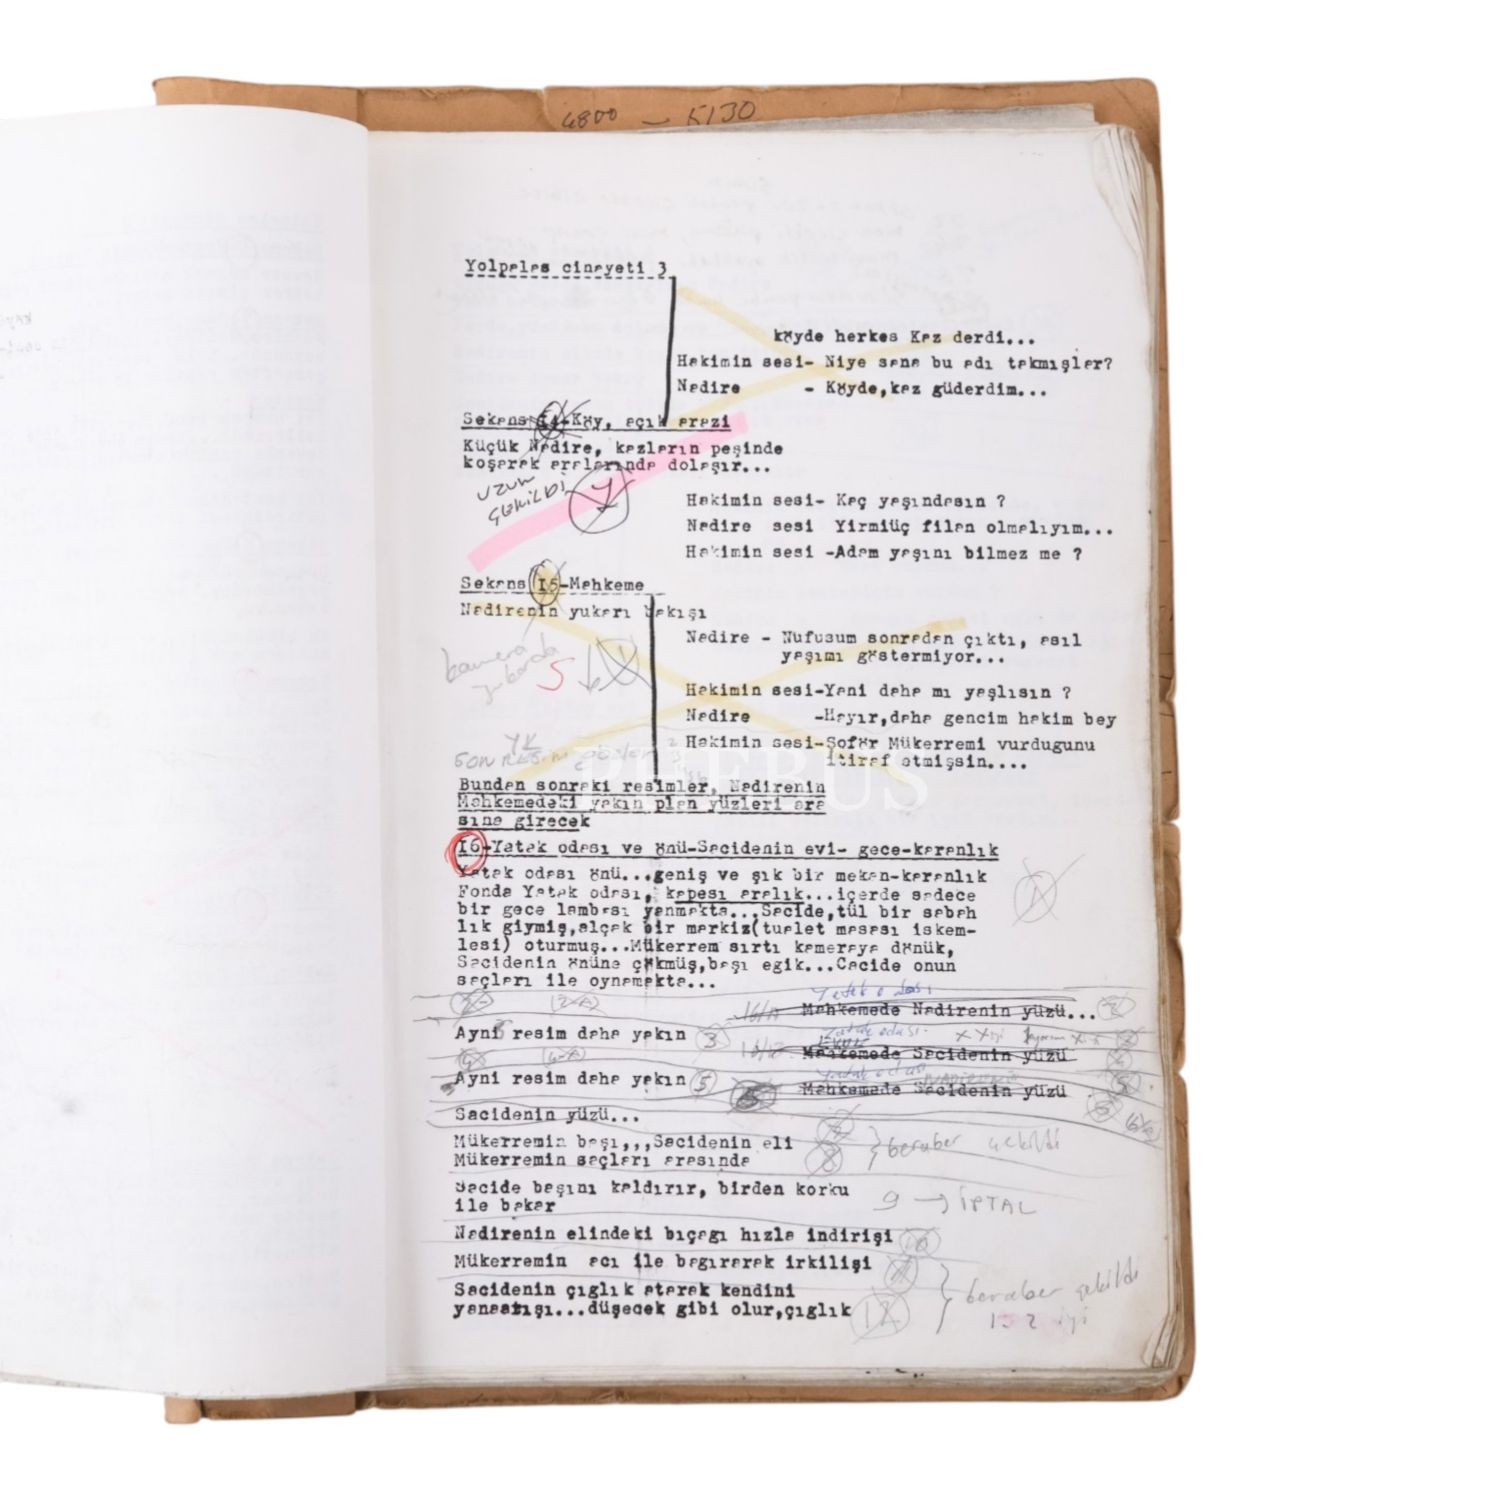 4800 — 5130
Yolpalas cinayeti 3
köyde herkes Kaz derdi...
Hakimin sesi- Niye sana bu adı takmışlar?
Nadire - Köyde,kaz güderdim...
Sekans 14-Köy, açık arazi
Küçük Nadire, kazların peşinde
koşarak aralarında dolaşır...
UZUN
ÇEKİLDİ
1
Hakimin sesi- Kaç yaşındasın ?
Nadire sesi Yirmiüç filan olmalıyım...
Hakimin sesi -Adam yaşını bilmez me ?
Sekans 15-Mahkeme
Nadirenin yukarı bakışı
kamera
yukarda
S
1
Nadire - Nufusum sonradan çıktı, asıl
yaşımı göstermiyor...
Hakimin sesi-Yani daha mı yaşlısın ?
Nadire -Hayır,daha gencim hakim bey
Hakimin sesi-Şoför Mükerremi vurdugunu
itiraf etmişsin....
YK
SON RESim gözler
PHEBUS
Bundan sonraki resimler, Nadirenin
Mahkemedeki yakın plan yüzleri ara
sına girecek
16-Yatak odası ve önü-Sacidenin evi- gece-karanlık
Yatak odası önü...geniş ve şık bir mekan-karanlık
Fonda Yatak odası, kapası aralık...içerde sadece
bir gece lambası yanmakta...Sacide,tül bir sabah
lık giymiş,alçak bir markiz(tualet masası iskem-
lesi) oturmuş...Mükerrem sırtı kameraya dönük,
Sacidenin önüne çökmüş,başı egik...Cacide onun
saçları ile oynamakta...
1
Yatak odası
2 2-A 16/A Mahkemede Nadirenin yüzü... 2
Yatak odası
Ayni resim daha yakın 3
4 4-A Mahkemede Sacidenin yüzü 4
Yatak odası NADİRENİN
Ayni resim daha yakın 5 Mahkemede Sacidenin yüzü
Sacidenin yüzü... 6 6/A
Mükerremin başı,,,Sacidenin eli 7
Mükerremin saçları arasında 8
beraber çekildi
Sacide başını kaldırır, birden korku
ile bakar
9 → İPTAL
Nadirenin elindeki bıçagı hızla indirişi 10
Mükerremin acı ile bagırarak irkilişi 11
Sacidenin çıglık atarak kendini
yanaatışı...düşecek gibi olur,çıglık 12
beraber çekildi
1 2 iyi